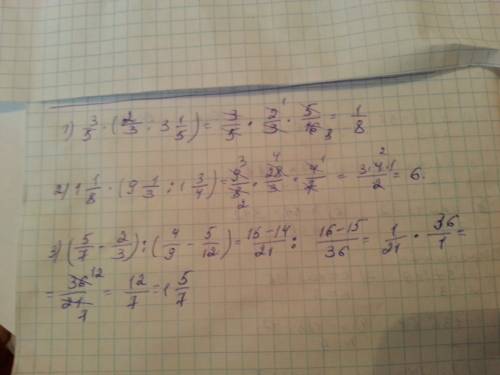 1) 3/5 · (2/3 : 3 1/5) = 3/5 · 2/3 · 5/16 = 1/8
2) 1 1/8 · (9 1/3 : 1 3/4) = 9/8 · 28/3 · 4/7 = 3·4·1/2 = 6.
3) (5/7 - 2/3) : (4/9 - 5/12) = 16-14/21 : 16-15/36 = 1/21 · 36/1 =
= 36/21 = 12/7 = 1 5/7